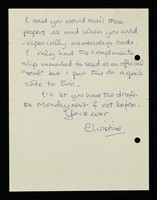 I said you would mail these
papers as and when you could
- especially membership cards.
I only had the compliments
slip
to send as an official
"seal" but I put
a quick
note to Eve.
I'll let you have the draft
on Monday next if not before.
Yours ever
Christine